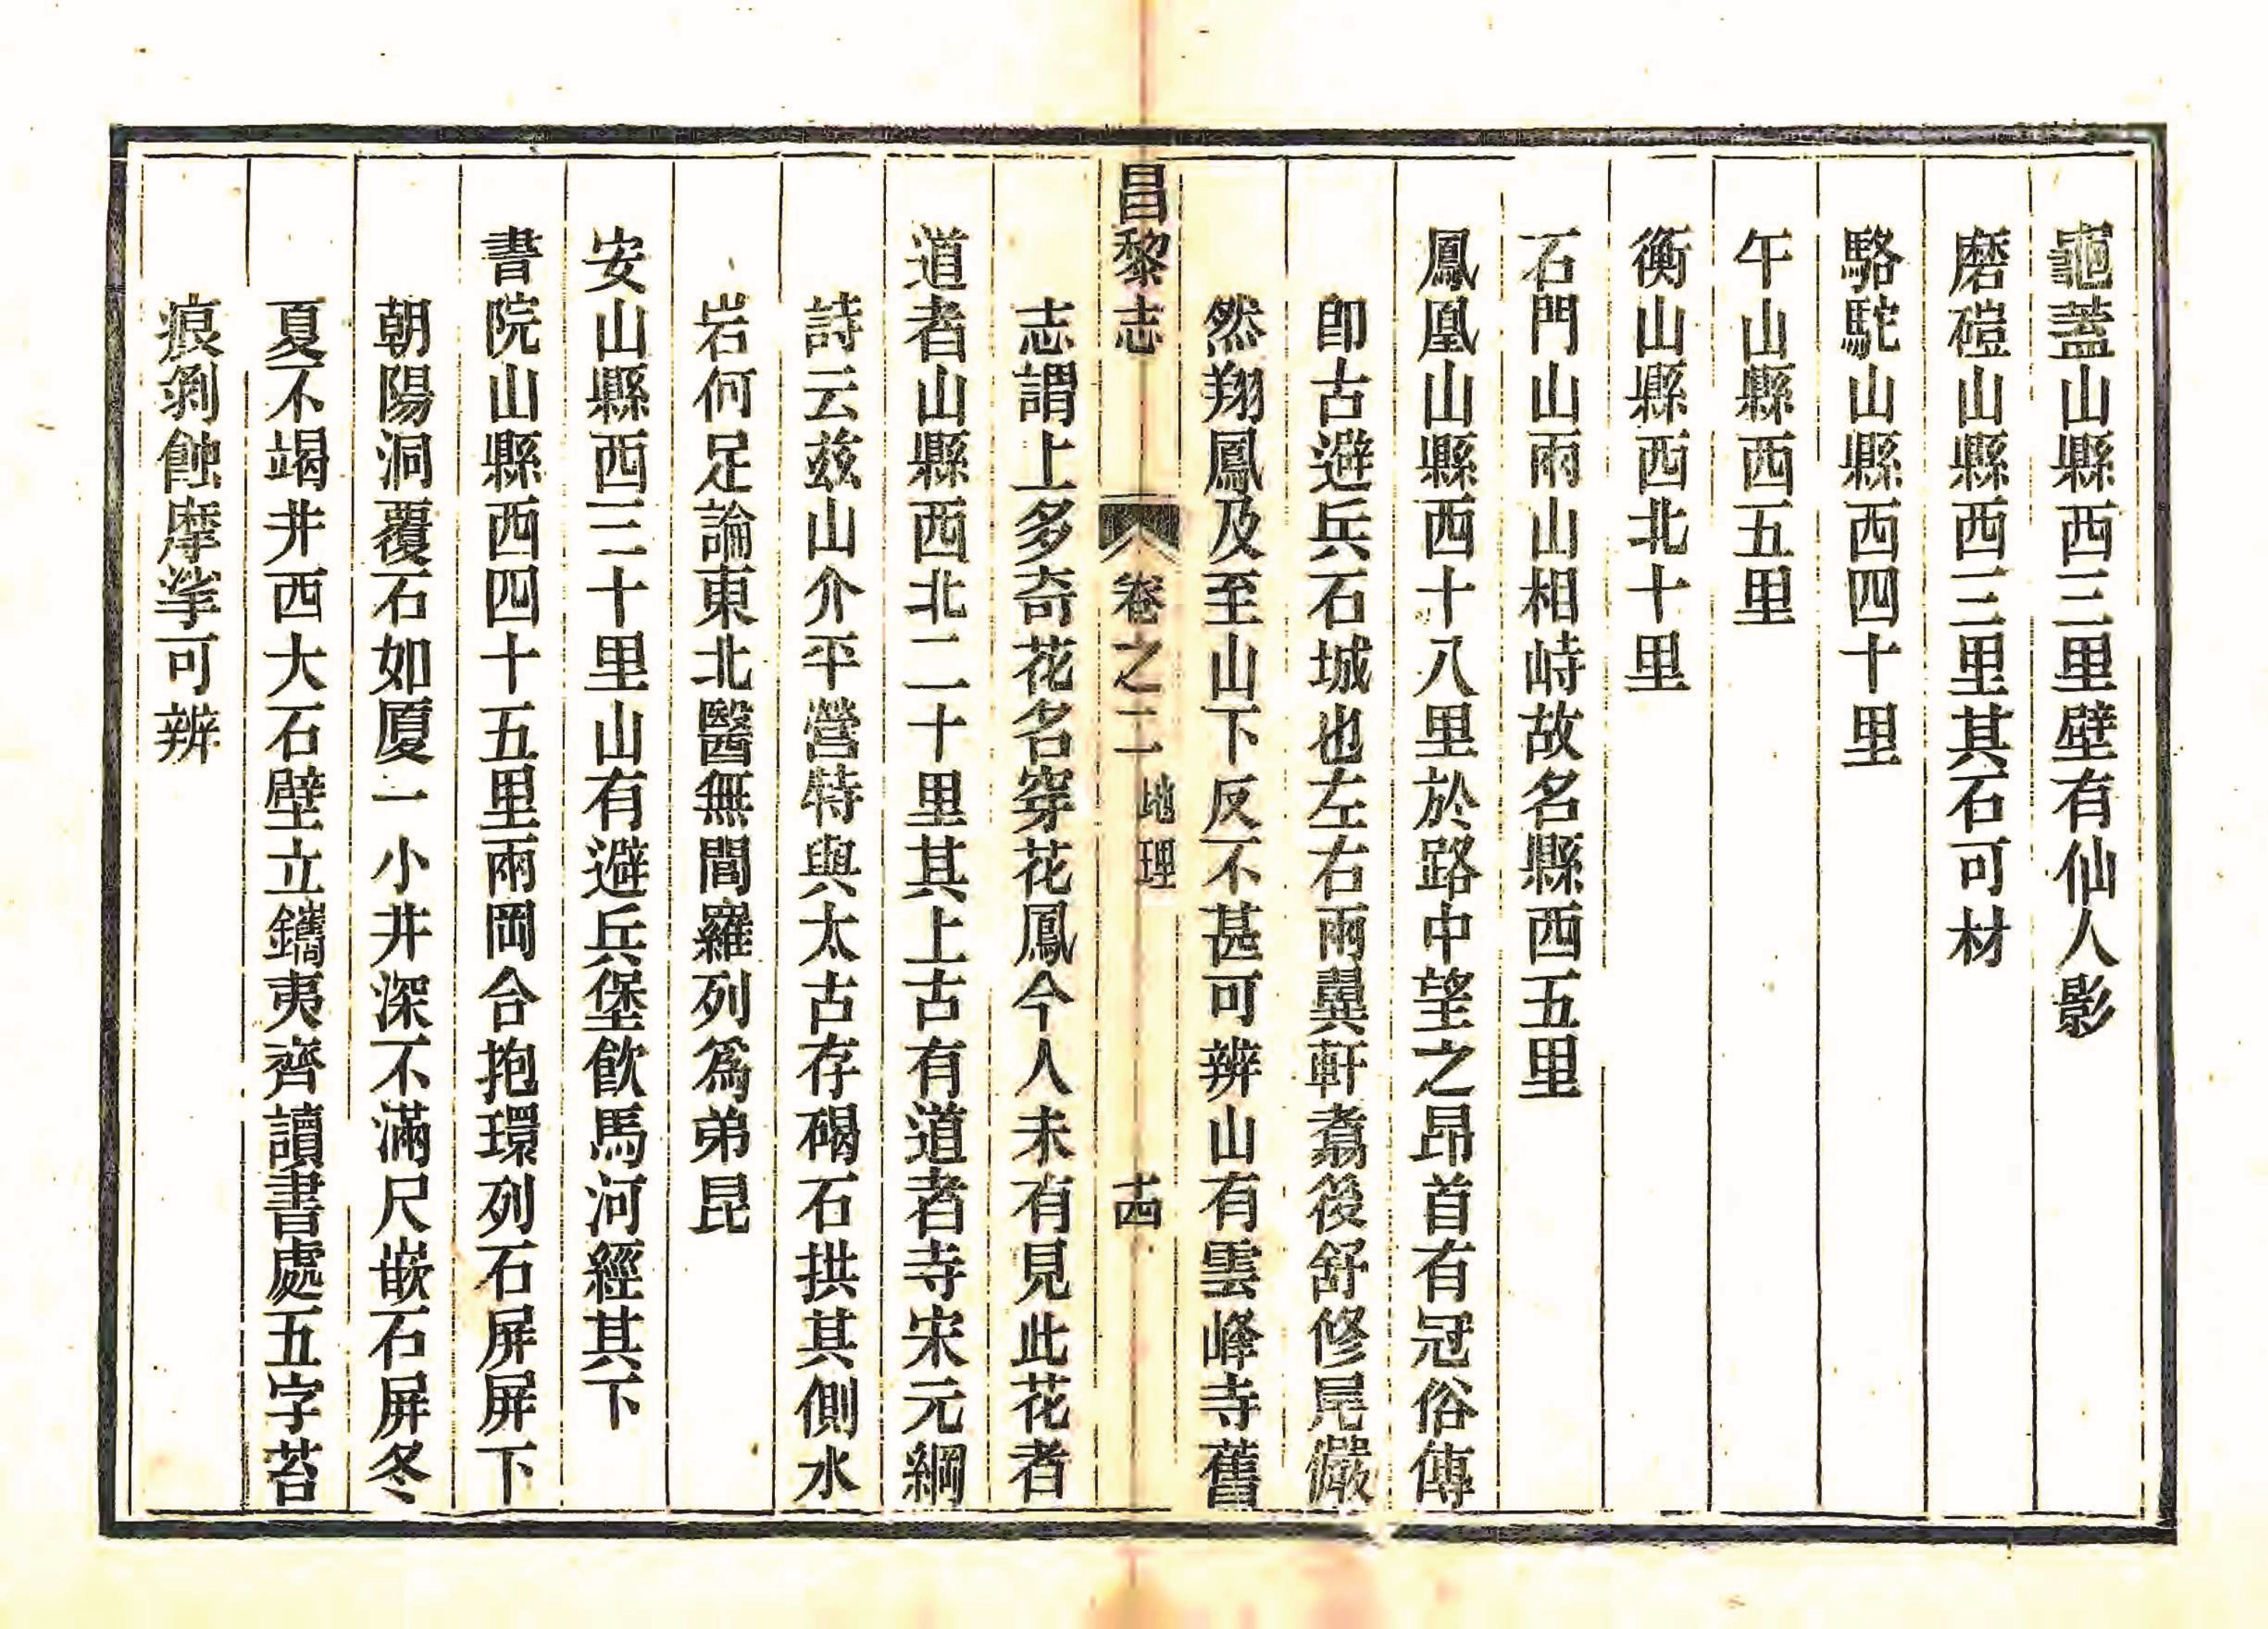 龜蓋山縣西三里壁有仙人影
磨磑山縣西三里其石可材
駱駝山縣西四十里
午山縣西五里
衡山縣西北十里
石門山兩山相峙故名縣西五里
鳳凰山縣西十八里於路中望之昂首有冠俗傳
卽古避兵石城也左右兩翼軒翥後舒修尾儼
然翔鳳及至山下反不甚可辨山有雲峰寺舊
昌黎志 卷之二 地理 十四
志謂上多奇花名穿花鳳今人未有見此花者
道者山縣西北二十里其上古有道者寺宋元綱
詩云茲山介平營特與太古存碣石拱其側水
岩何足論東北醫無閭羅列爲弟昆
安山縣西三十里山有避兵堡飮馬河經其下
書院山縣西四十五里兩岡合抱環列石屏屏下
朝陽洞覆石如厦一小井深不滿尺嵌石屏冬
夏不竭井西大石壁立鐫夷齊讀書處五字苔
痕剝蝕摩挲可辨